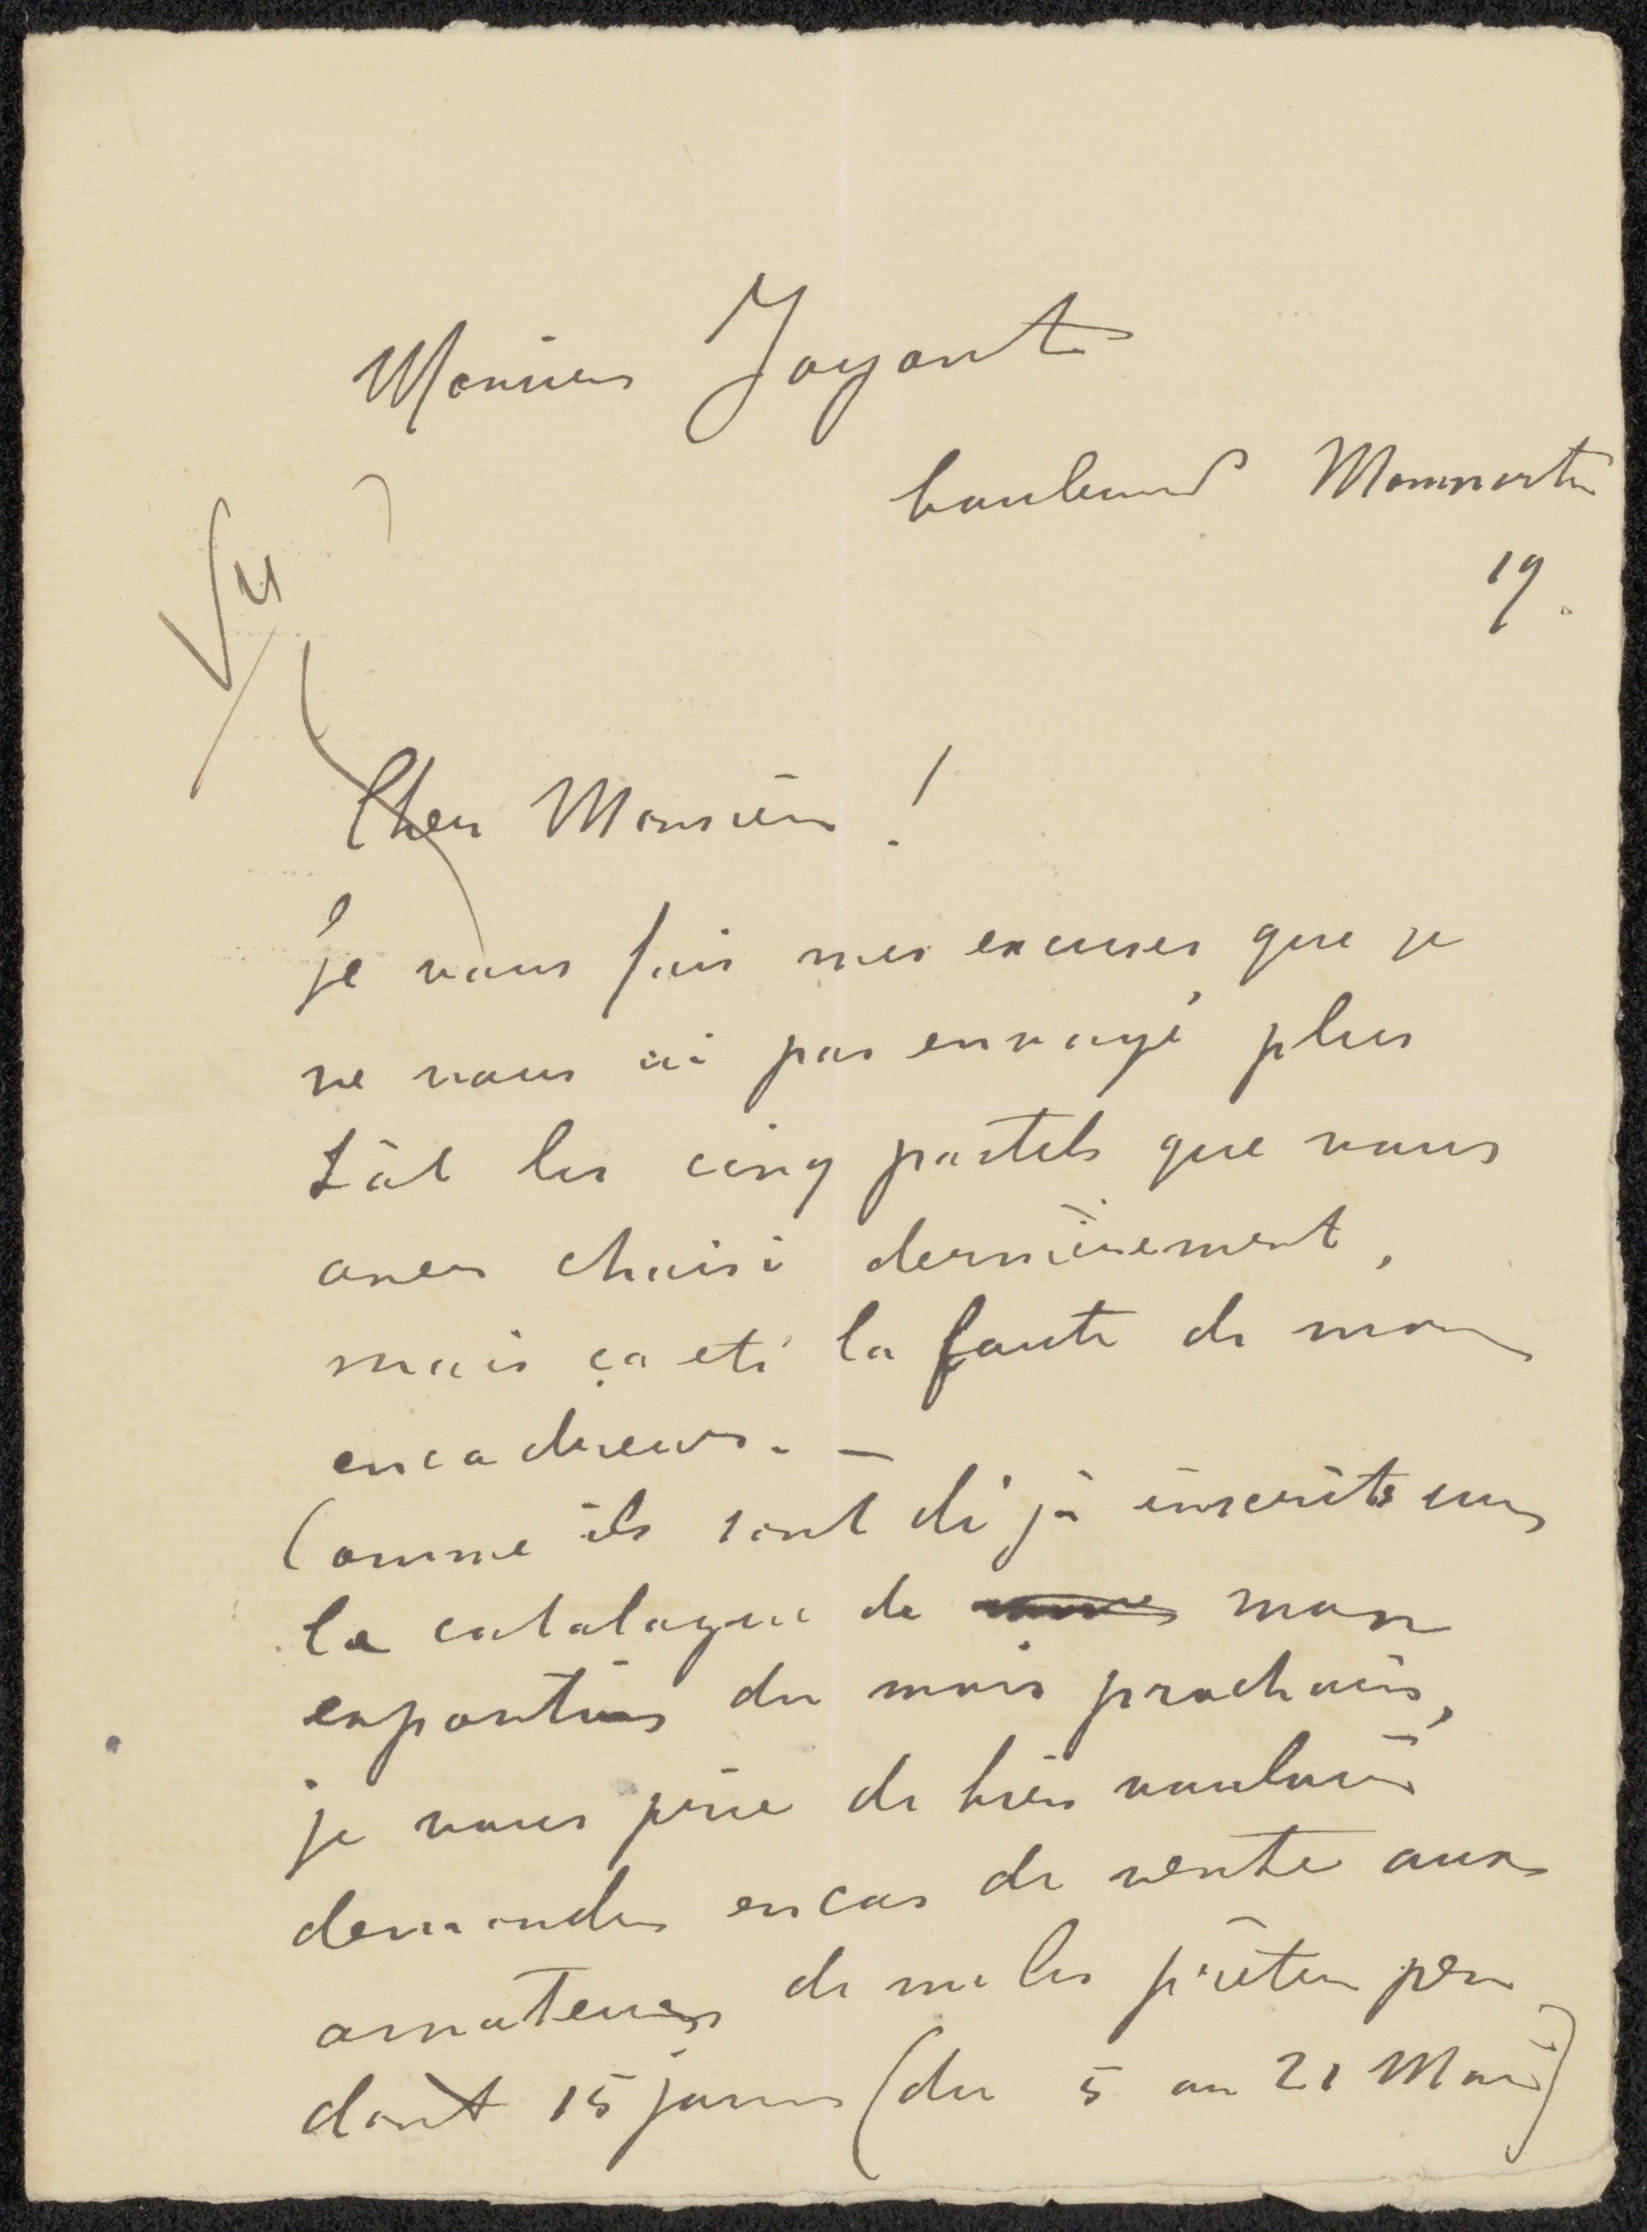 Monsieur Joyant
boulevard Montmartre
19.
Vu
Cher Monsieur !
je vous fais mes excuses que je
ne vous ai pas envoyé plus
tôt les cinq pastels que vous
avez choisi dernièrement,
mais ça eté la faute de mon
encadreur. —
Comme ils sont déjà inscrits sur
le catalogue de mon
exposition du mois prochain,
je vous prie de bien vouloir
demander en cas de vente aux
amateurs de me les prêter pen
dant 15 jours (du 5 au 21 Mai)